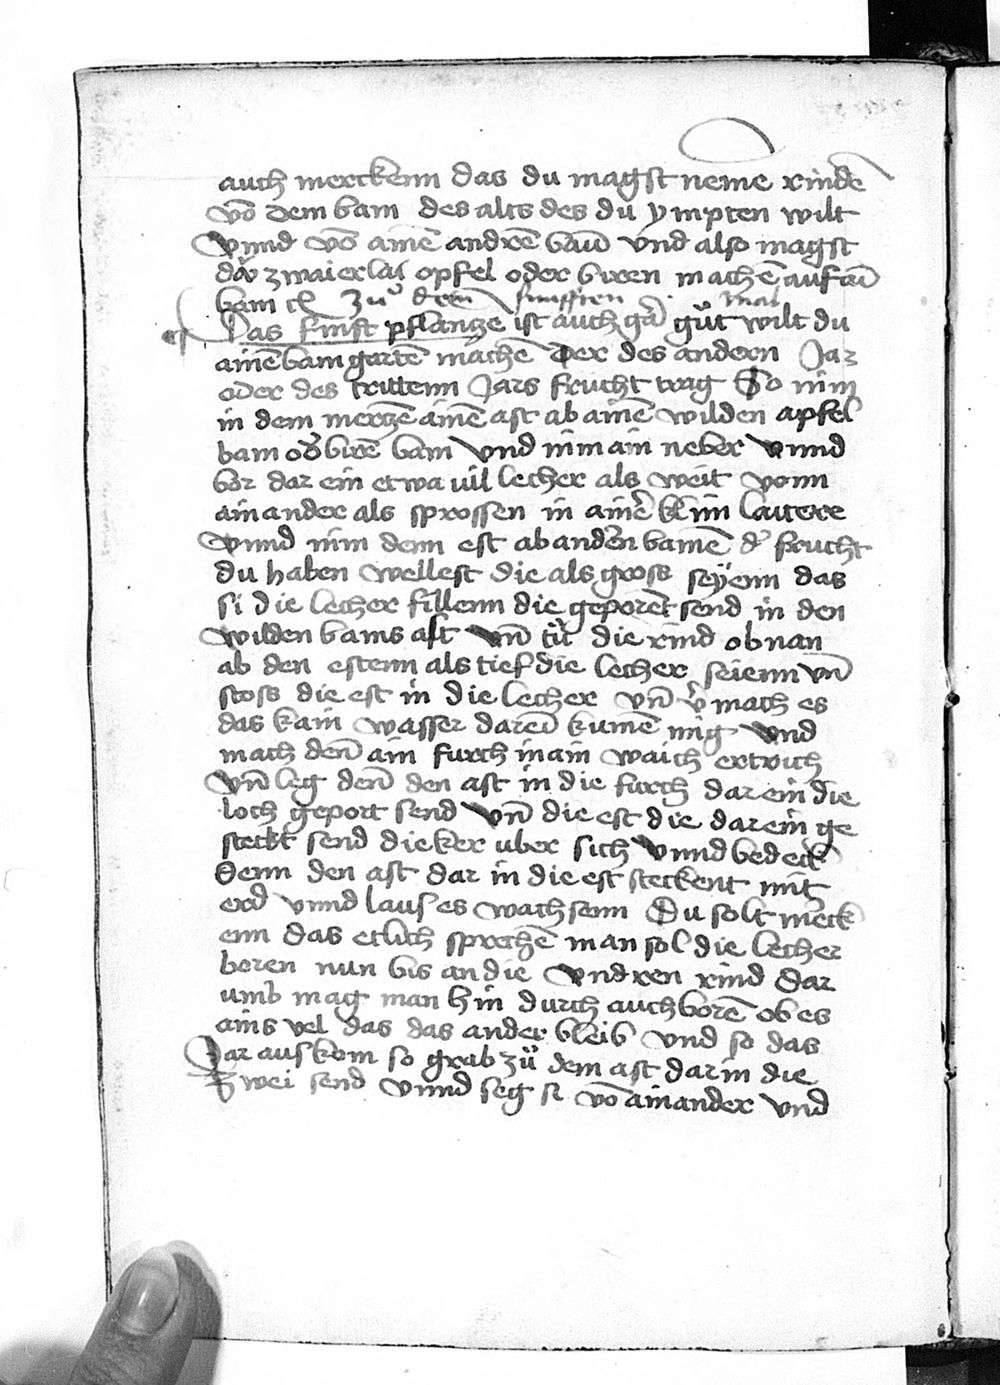 auch merckenn das du magst neme rinde
vō dem bam des alts des du ympten wilt
Vnnd vō ainē andrē bau̅ vnd also magst
du zwaierlai opfel oder biren machē auf ain̄
bam
zů dem funfften mal
Das finft pflantze ist auch gar gůt wilt du
ainē bamgartē machē der des andern Jar
oder des trittenn Jars frucht trag So nim
in dem mertzē ainē ast ab ainē wilden apfel
bam od̕ birē bam vnd nim ain neber vnnd
bor dar ein etwa uil lecher als weit vonn
ainander als sprossen in ainē klim laitere
Vnnd nim denn est ab andern bamē d̕ frucht
du haben wellest die als gross seyenn das
si die lecher fillenn die geporet send in den
wilden bams ast vn̄ tů die rind obnan
ab den estenn als tief die lecher seienn vn̄
stoss die est in die lecher vn̄ v̕mach es
das kain wasser darein̄ kumē mig vnd
mach den̄ ain furch in ain waich ertrich
vn̄ leg den̄ den ast in die furch dar ein die
loch geport send vn̄ die est die darein ge
steckt send die ker uber sich vnnd bedeck
denn den ast dar in die est steckent mit
erd vnnd laus es wachsenn Du solt merck
enn das etlich sprechē man sol die lecher
boren nun bis an die vndren rind dar
umb mag man hin durch auch borē ob es
ains vel das das ander bleib vnd so das
Jar aus kom so grab zů dem ast dar in die
zwei send vnnd seg si vō ainander vnd